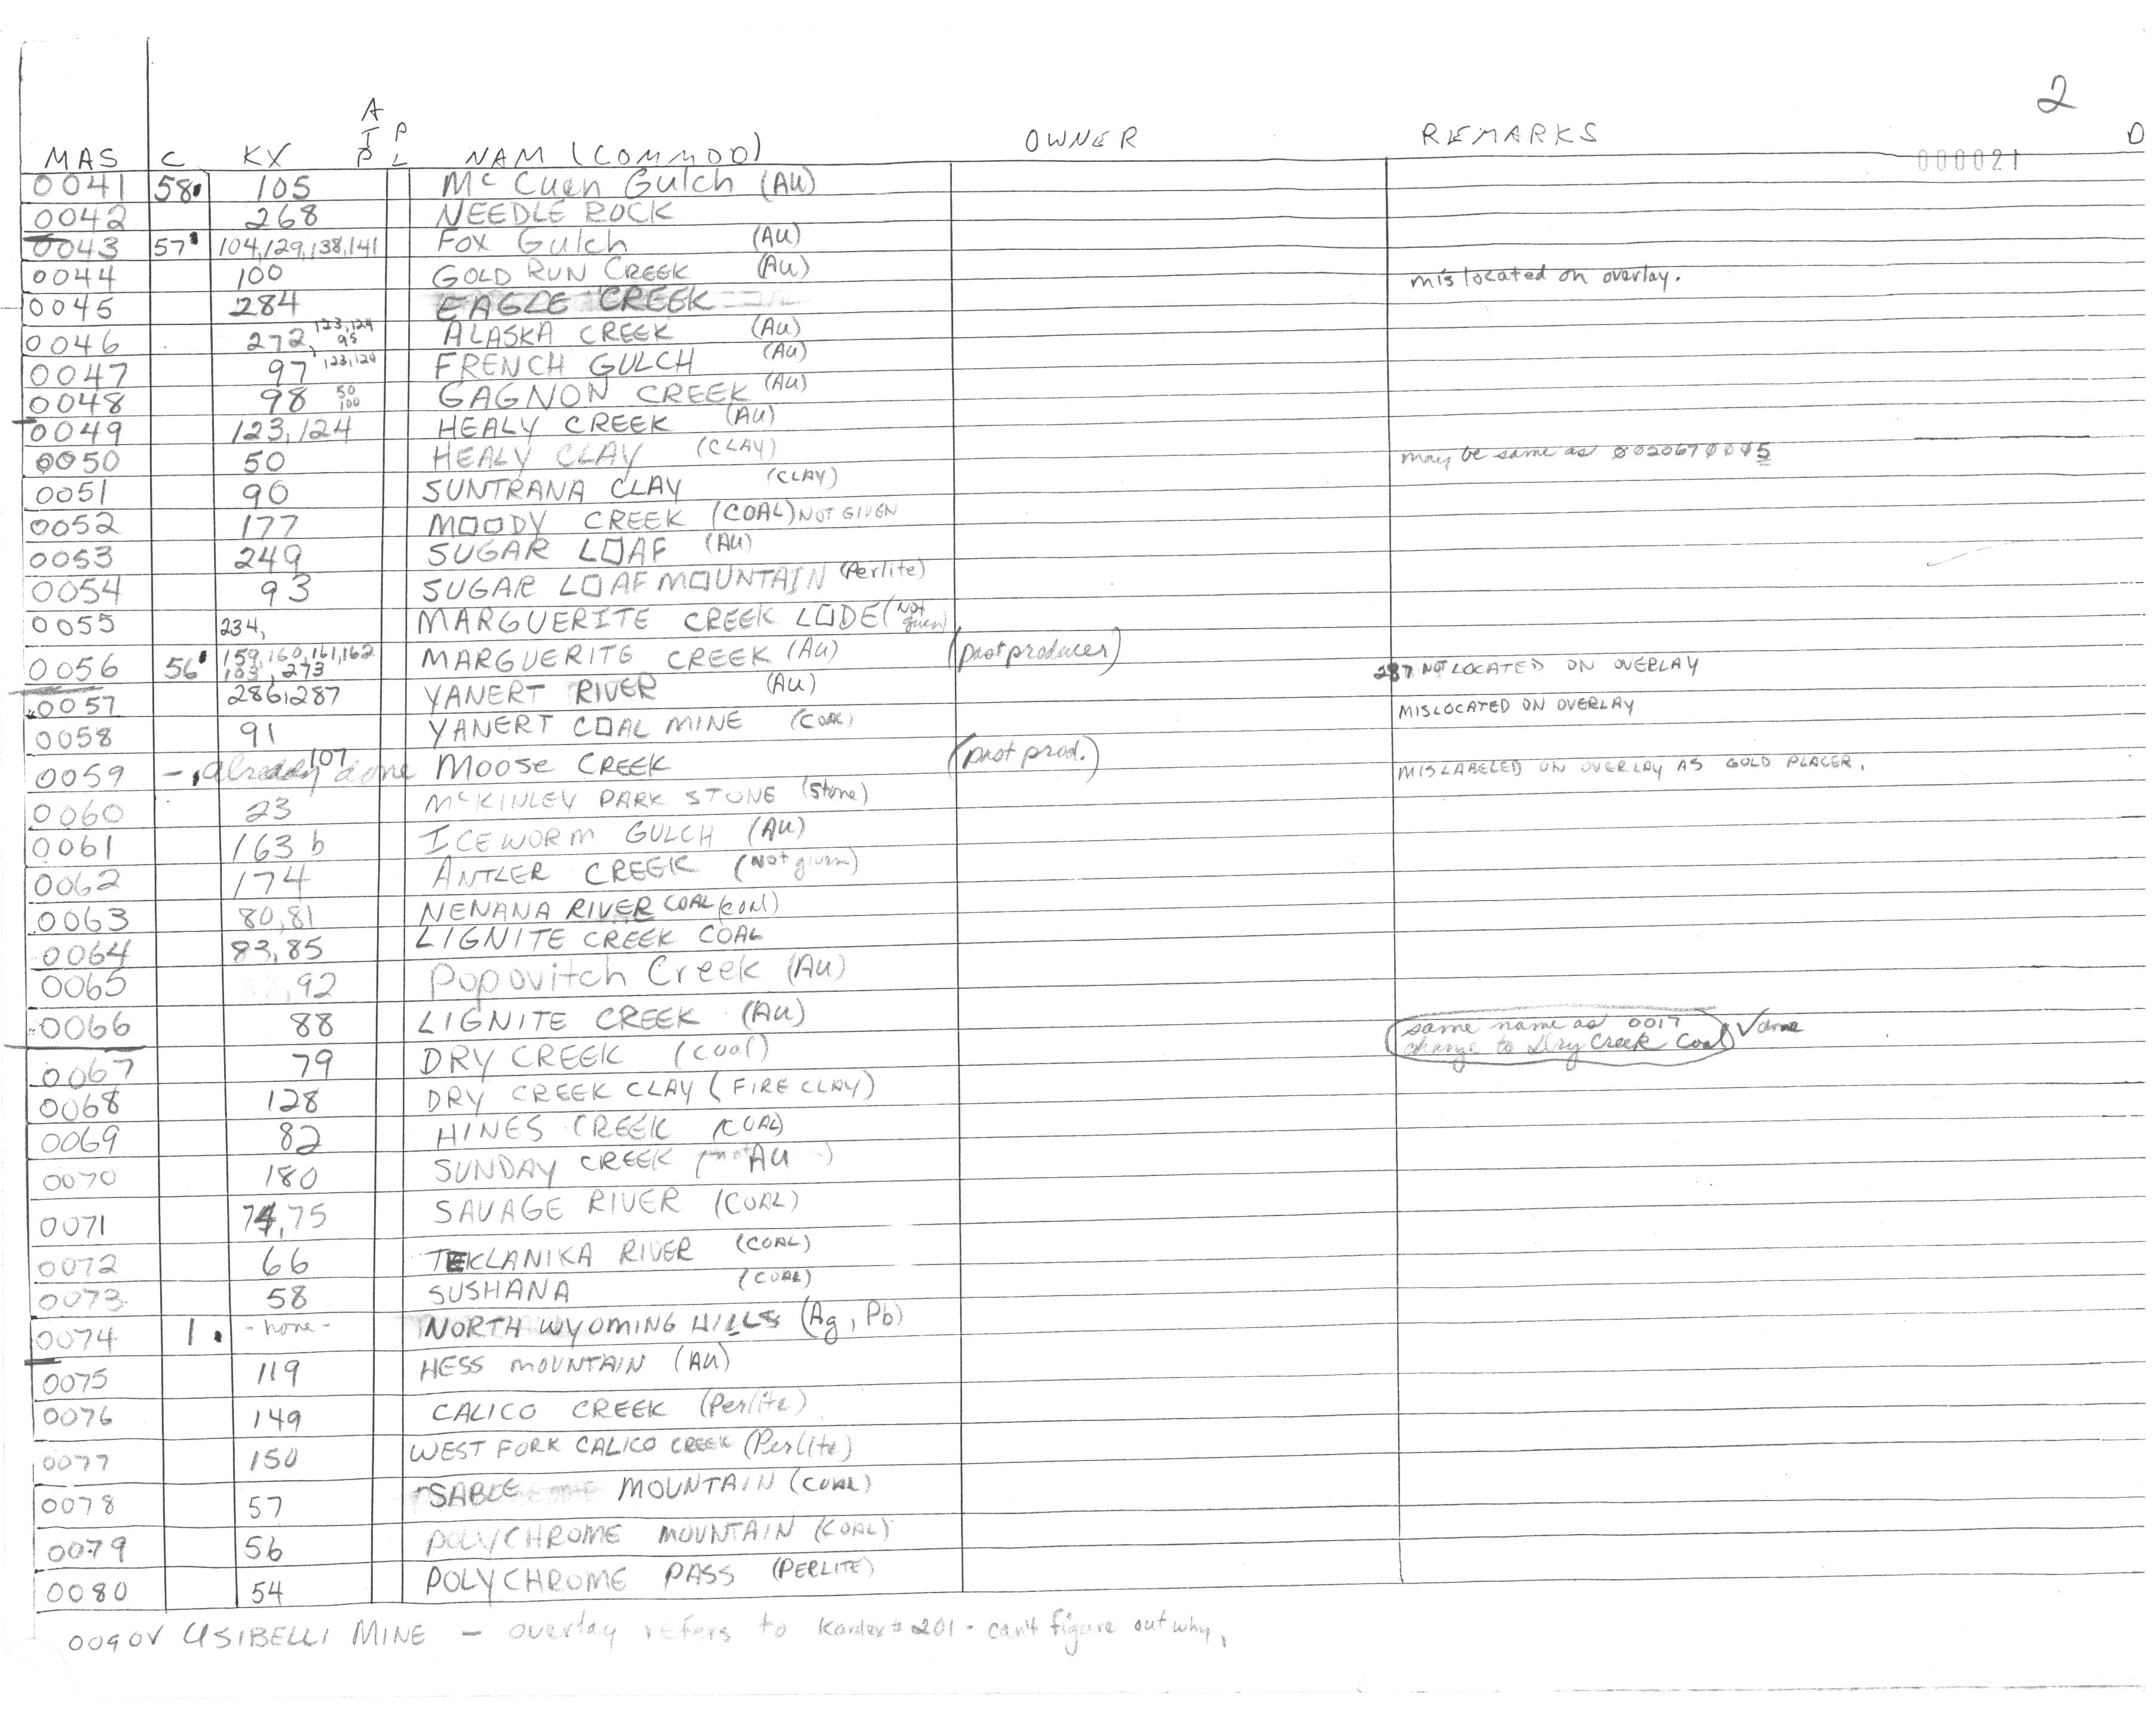 2
A
T P
MAS C KX P L NAM (COMMOD) OWNER REMARKS D
000021
0041 58 105 McCuen Gulch (Au)
0042 268 NEEDLE ROCK
0043 57 104,129,138,141 Fox Gulch (Au)
0044 100 GOLD RUN CREEK (Au) mislocated on overlay.
0045 284 EAGLE CREEK
0046 272, 123,124 95 ALASKA CREEK (Au)
0047 97 123,124 FRENCH GULCH (Au)
0048 98 50 100 GAGNON CREEK (Au)
0049 123,124 HEALY CREEK (Au)
0050 50 HEALY CLAY (CLAY) may be same as 0020670045
0051 90 SUNTRANA CLAY (CLAY)
0052 177 MOODY CREEK (COAL) NOT GIVEN
0053 249 SUGAR LOAF (Au)
0054 93 SUGAR LOAF MOUNTAIN (Perlite)
0055 234, MARGUERITE CREEK LODE (Not given)
0056 56 159,160,161,162 103, 273 MARGUERITE CREEK (Au) (past producer) 287 NOT LOCATED ON OVERLAY
0057 286,287 YANERT RIVER (Au) MISLOCATED ON OVERLAY
0058 91 YANERT COAL MINE (COAL)
0059 - already done 107 MOOSE CREEK (past prod.) MISLABELED ON OVERLAY AS GOLD PLACER.
0060 23 McKINLEY PARK STONE (Stone)
0061 163 b ICEWORM GULCH (Au)
0062 174 ANTLER CREEK (Not given)
0063 80,81 NENANA RIVER COAL (coal)
0064 83,85 LIGNITE CREEK COAL
0065 ,92 Popovitch Creek (Au)
0066 88 LIGNITE CREEK (Au) same name as 0017 ✓done
change to Dry Creek Coal
0067 79 DRY CREEK (coal)
0068 128 DRY CREEK CLAY (FIRE CLAY)
0069 82 HINES CREEK (COAL)
0070 180 SUNDAY CREEK (Au)
0071 74,75 SAVAGE RIVER (COAL)
0072 66 TEKLANIKA RIVER (COAL)
0073 58 SUSHANA (COAL)
0074 1. -none- NORTH WYOMING HILLS (Ag, Pb)
0075 119 HESS MOUNTAIN (AU)
0076 149 CALICO CREEK (Perlite)
0077 150 WEST FORK CALICO CREEK (Perlite)
0078 57 SABLE MOUNTAIN (COAL)
0079 56 POLYCHROME MOUNTAIN (COAL)
0080 54 POLYCHROME PASS (PERLITE)
0090V USIBELLI MINE - overlay refers to Kardex # 201 - can't figure out why,